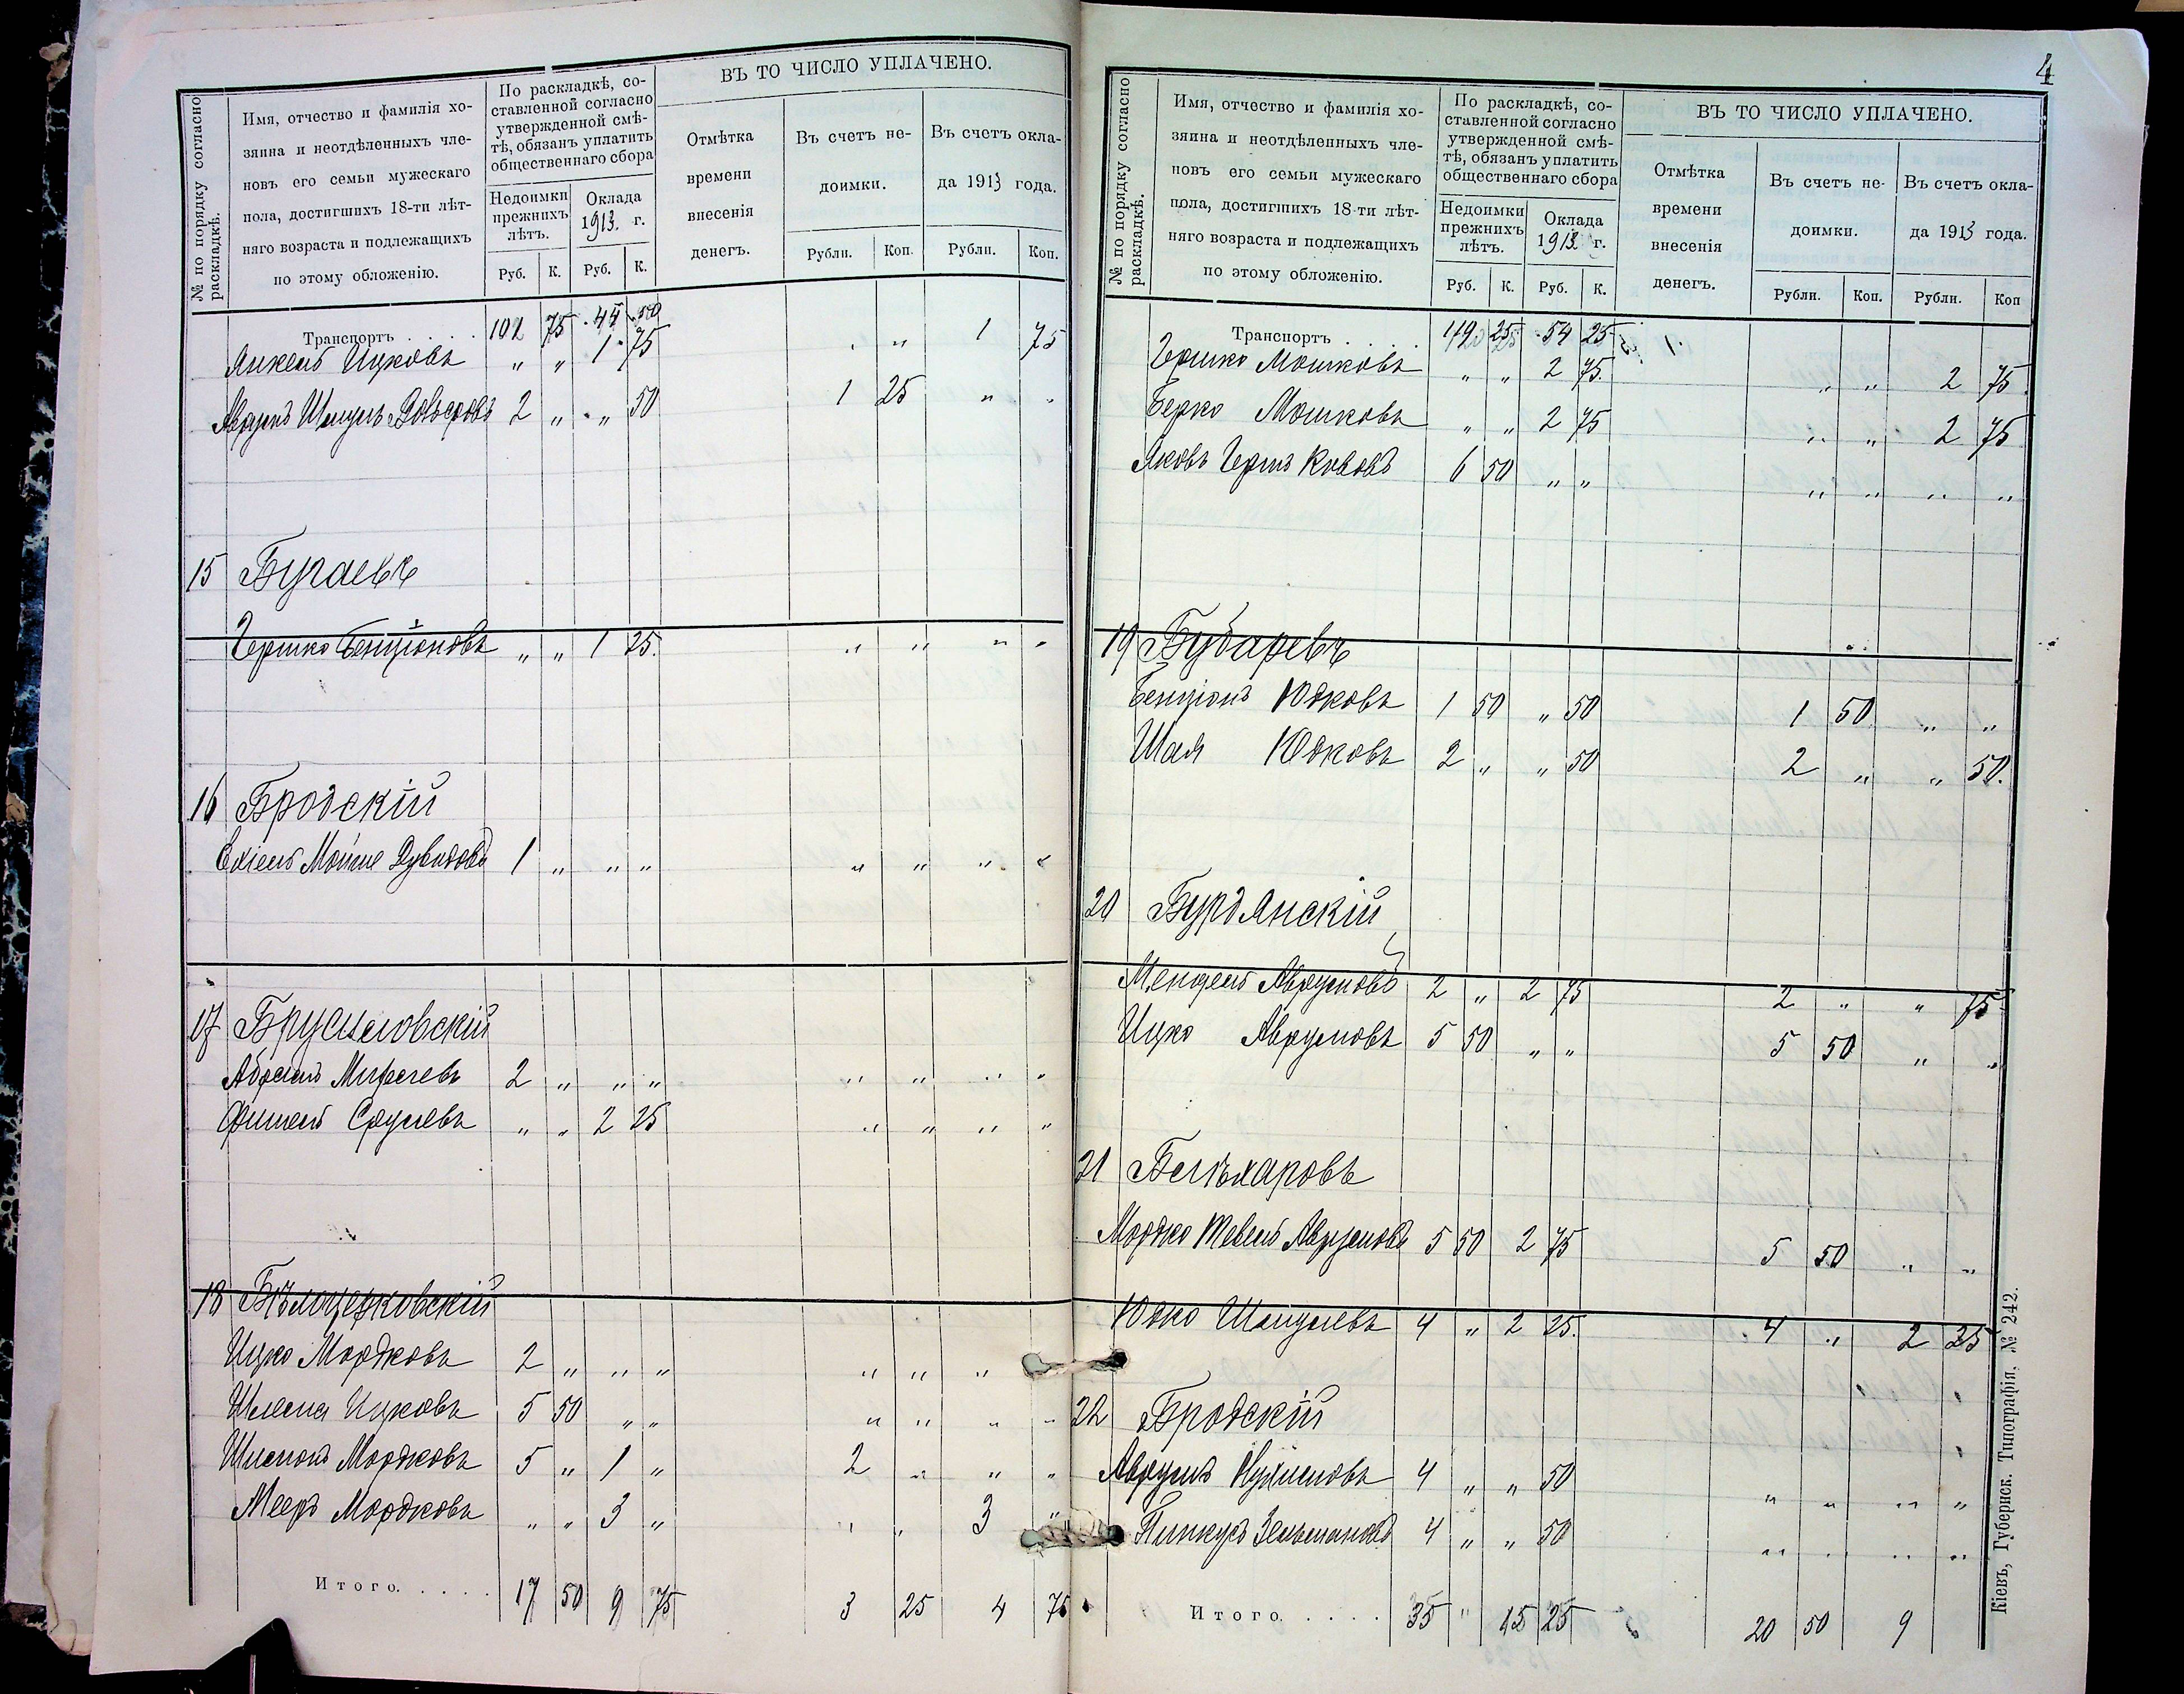 № по порядку согласно раскладкѣ.
Имя, отчество и фамилія хо-
зяина и неотдѣленныхъ чле-
новъ его семьи мужескаго
пола, достигшихъ 18-ти лѣт-
няго возраста и подлежащихъ
по этому обложенію.
По раскладкѣ, со-
ставленной согласно
утвержденной смѣ-
тѣ, обязанъ уплатить
общественнаго сбора
Недоимки
прежнихъ
лѣтъ.
Оклада
1913. г.
Руб. К. Руб. К.
ВЪ ТО ЧИСЛО УПЛАЧЕНО.
Отмѣтка
времени
внесенія
денегъ.
Въ счетъ не-
доимки.
Въ счетъ окла-
да 1913 года.
Рубли. Коп. Рубли. Коп.
Транспортъ . . . . . 102 75 44 50
Янкель Ицковъ " " 1 75 " " 1 75
Аврумъ Шмуль 2 " " 50 1 25 " "
15 Бугаевъ
Гершко Бенціоновъ " " 1 25. " " " "
16 Бродскій
Ехіель Мойше Дувидовъ 1 " " " " " " "
17 Брусиловскій
Абрамъ 2 " " " " " " "
Фишель Сруловъ " " 2 25 " " " "
18 Бѣлоцерковскій
Ицко Мордковъ 2 " " " " " "
Шлема Ицковъ 5 50 " " " " " "
Шимонъ Мордковъ 5 " 1 " 2 " " "
Мееръ Мордковъ " " 3 " " " 3 "
Итого. . . . . 17 50 9 75 3 25 4 75
4
№ по порядку согласно раскладкѣ.
Имя, отчество и фамилія хо-
зяина и неотдѣленныхъ чле-
новъ его семьи мужескаго
пола, достигшихъ 18-ти лѣт-
няго возраста и подлежащихъ
по этому обложенію.
По раскладкѣ, со-
ставленной согласно
утвержденной смѣ-
тѣ, обязанъ уплатить
общественнаго сбора
Недоимки
прежнихъ
лѣтъ.
Оклада
1913. г.
Руб. К. Руб. К.
ВЪ ТО ЧИСЛО УПЛАЧЕНО.
Отмѣтка
времени
внесенія
денегъ.
Въ счетъ не-
доимки.
Въ счетъ окла-
да 1913 года.
Рубли. Коп. Рубли. Коп
Транспортъ . . . . . 25 54 25
Гершко Мошковъ " " 2 75. " " 2 75.
Берко Мошковъ " " 2 75 " " 2 75
Яковъ Гершковъ 6 50 " " " " " "
19 Бударевъ
Бенціонъ Юдковъ 1 50 " 50 1 50 " "
Шая Юдковъ 2 " " 50 2 " " 50.
20 Бурдянскій
Мендель Аврумовъ 2 " 2 75 2 " " 75
Ицко Аврумовъ 5 50 " " 5 50 " "
21
Мордко Тевель Аврумовъ 5 50 2 75 5 50 " "
Юдко Шмулевъ 4 " 2 25. 4 " 2 25
22 Бродскій
Аврумъ Нухимовъ 4 " " 50 " " " "
Пинкусъ Зельмановъ 4 " " 50 " " " "
Итого. . . . . 35 " 15 25 20 50 9
Кіевъ, Губернск. Типографія, № 242.